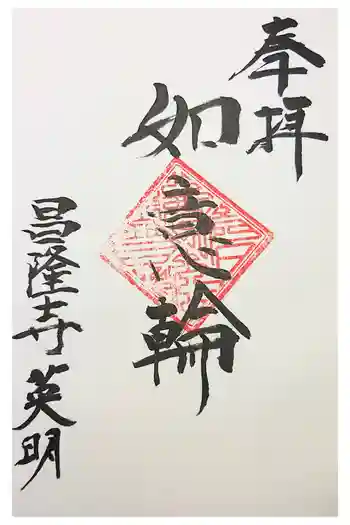 奉拝
如意輪
昌隆寺 英明